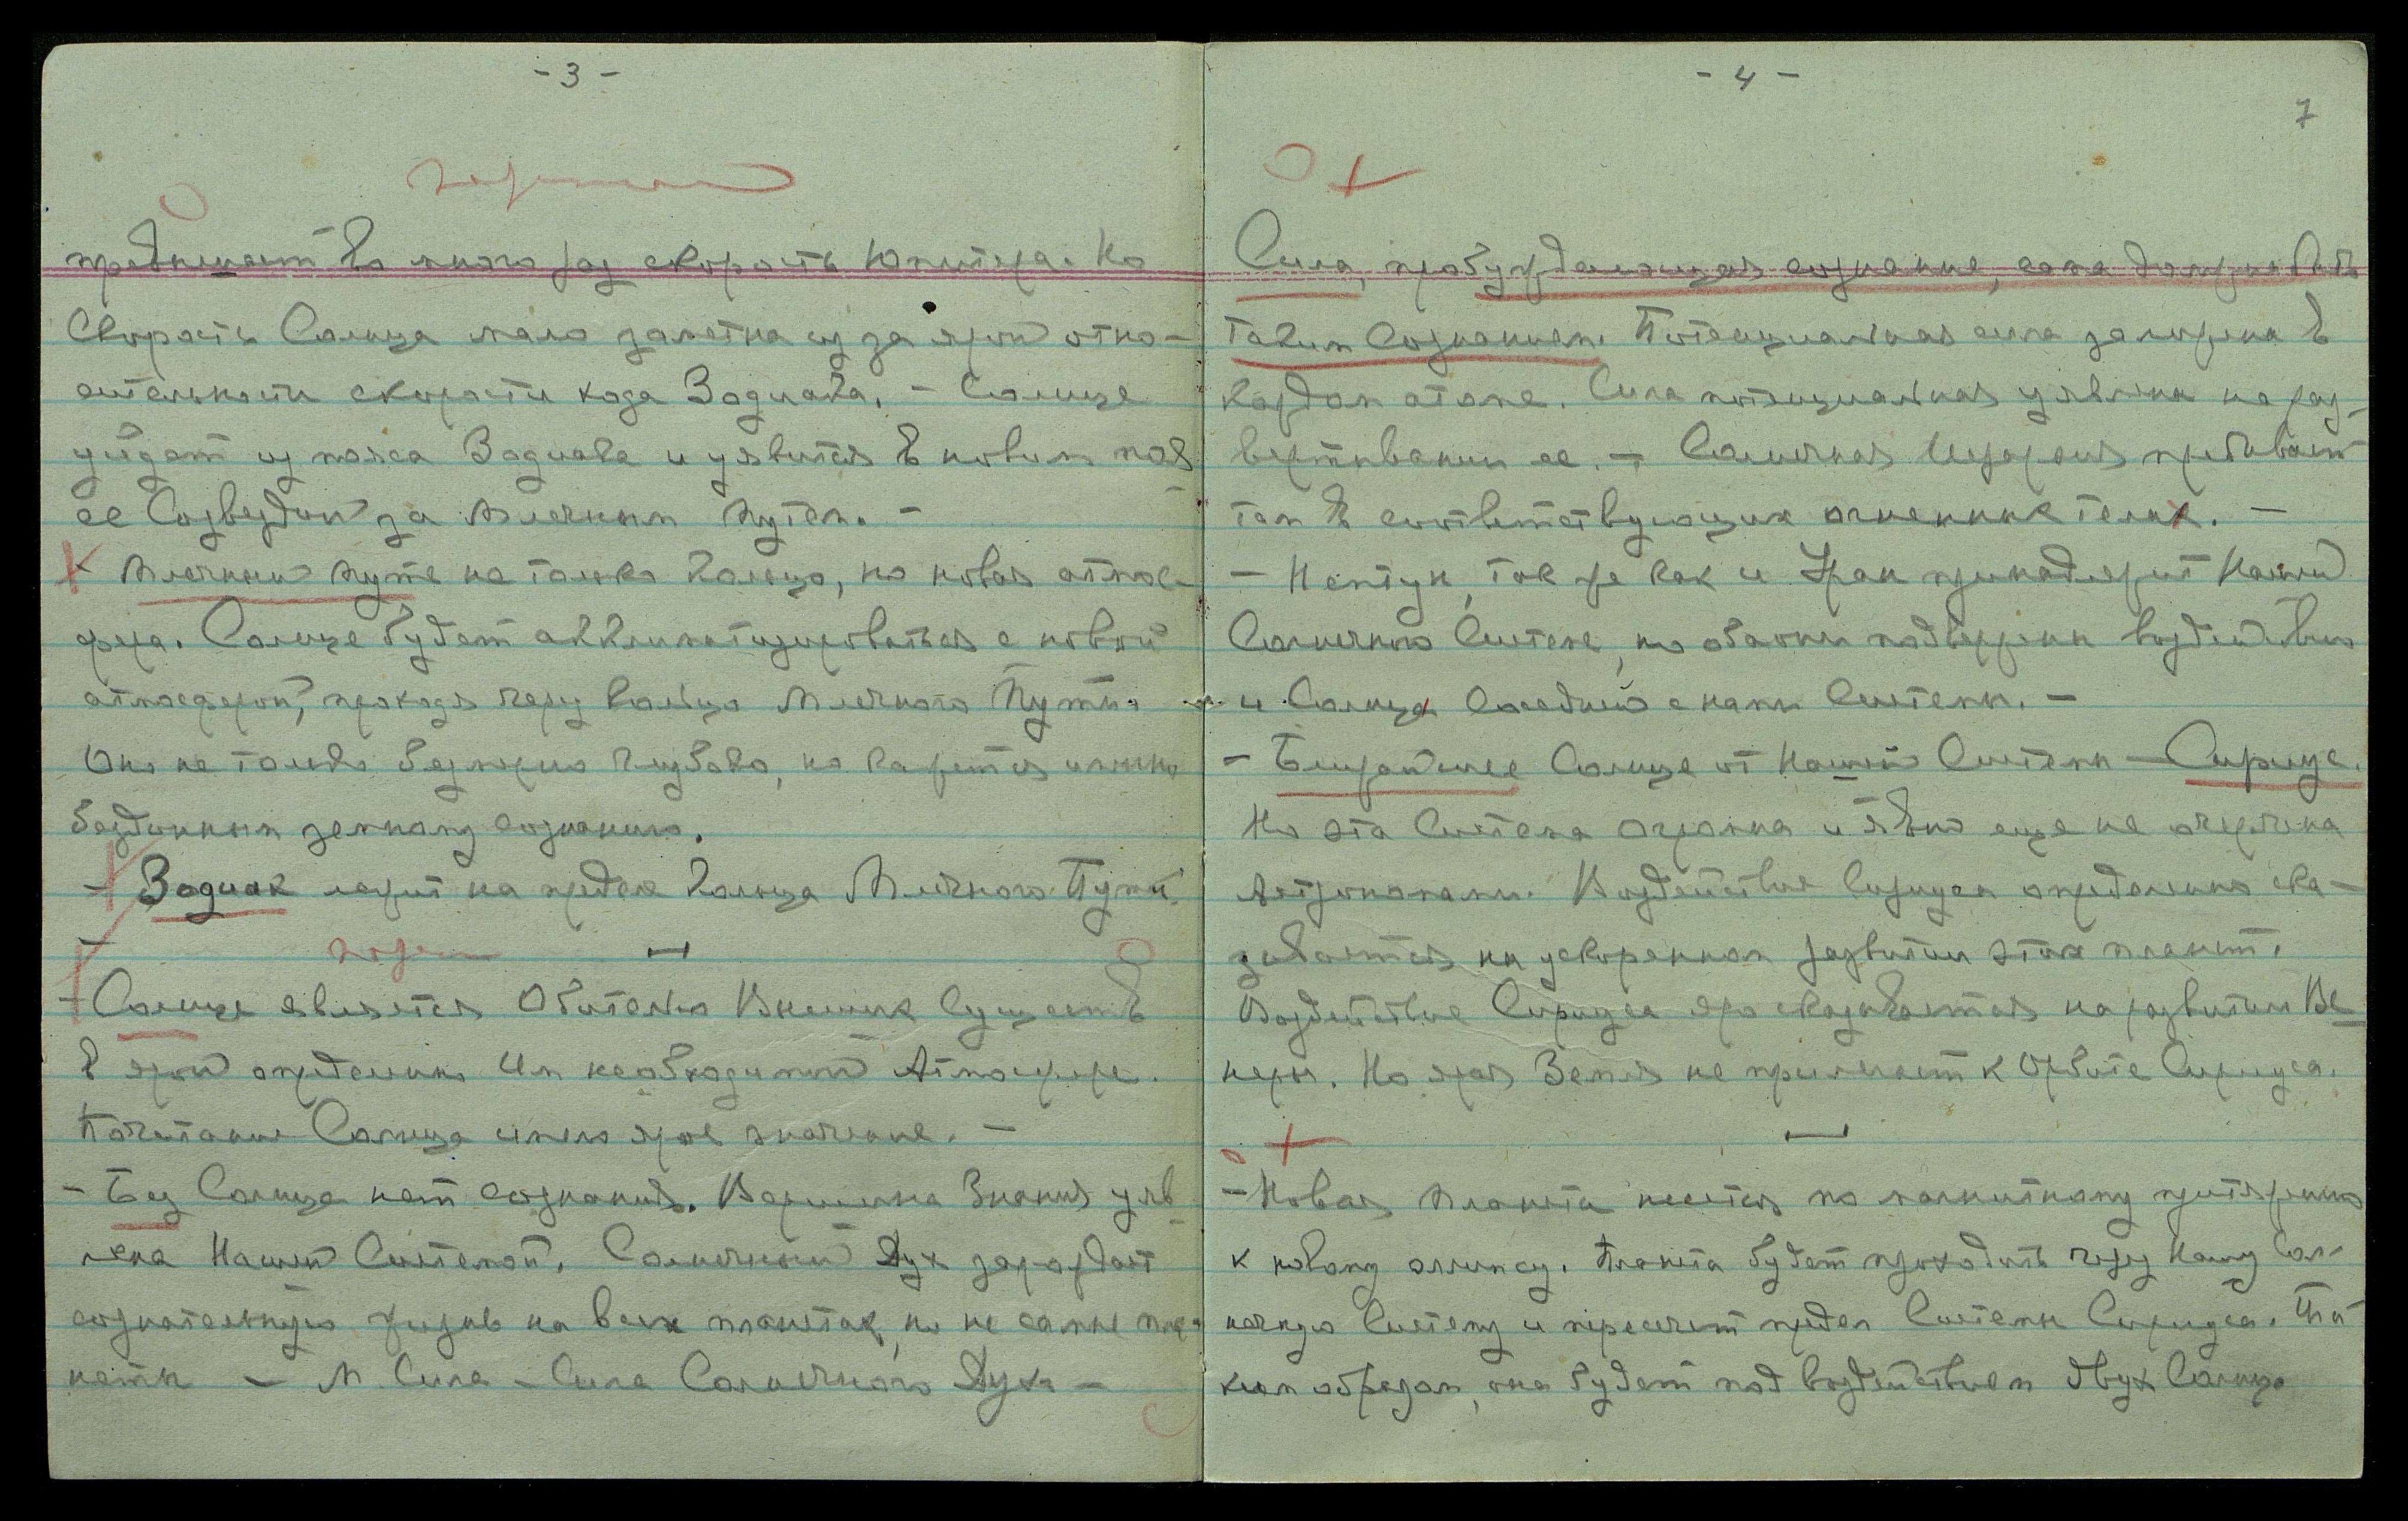 - 3 -
превышает во много раз скорость Юпитера. Но
Скорость Солнца мало заметна из за ярой отно-
сительности скорости хода Зодиака. - Солнце
уйдет из пояса Зодиака и уявится в новом поя-
се Созвездий за Млечным Путем. -
Млечный Путь не только Кольцо, но новая атмос-
фера. Солнце будет акклиматизироваться с новой
атмосферой, проходя через Кольцо Млечного Пути.
Оно не только безмерно глубоко, но кажется именно
бездонным земному сознанию.
- Зодиак лежит на пределе Кольца Млечного Пути.
-
- Солнце является Обителью Высших Существ
в ярой определенно Им необходимой Атмосфере.
Почитание Солнца имело ярое значение. -
- Без Солнца нет сознания. Вершина Знания уяв-
лена Нашей Системой. Солнечный Дух зарождает
сознательную жизнь на всех планетах, но не самые пла-
неты - М. Сила - Сила Солнечного Духа -
- 4 -
7
Сила, пробуждающая сознание, сама должна быть
таким Сознанием. Потенциальная сила заложена в
каждом атоме. Сила потенциальная уявлена на раз-
вертывании ее. - Солнечная Иерархия пребывает
там в соответствующих огненных телах. -
- Нептун, так же как и Уран принадлежит Нашей
Солнечной Системе, но оба они подвержены воздействию
и Солнца Соседней с нами Системы. -
- Ближайшее Солнце от Нашей Системы - Сириус.
Но эта Система огромна и явно еще не очерчена
Астрономами. Воздействие Сириуса определенно ска-
зывается на ускоренном развитии этих планет.
Воздействие Сириуса яро сказывается на развитии Ве-
неры. Но ярая Земля не прилегает к Орбите Сириуса.
- Новая Планета несется по магнитному притяжению
к новому эллипсу. Планета будет проходить через Нашу Сол-
нечную Систему и пересечет предел Системы Сириуса. Та-
ким образом, она будет под воздействием двух Солнц.